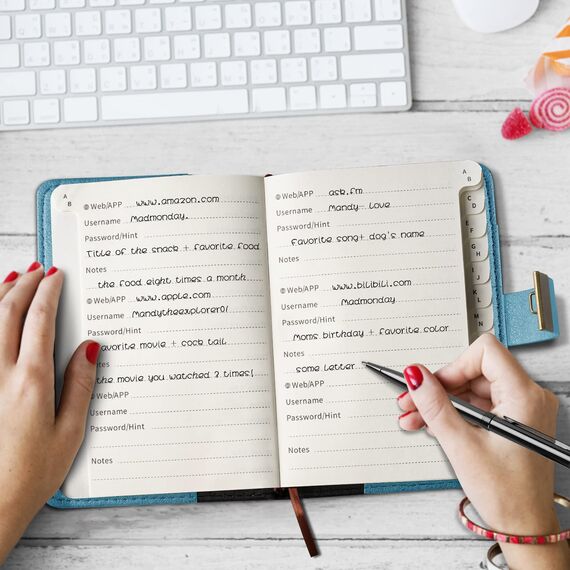 A
B
Web/APP www.amazon.com
Username Madmonday.
Password/Hint
Title of the snack + favorite food
Notes
the food eight times a month
Web/APP www.apple.com
Username Mandytheexplorer01
Password/Hint
favorite movie + cock tail
Notes
the movie you watched 2 times!
Web/APP
Username
Password/Hint
Notes
A
B
Web/APP ask.fm
Username Mandy love
Password/Hint
favorite song+ dog's name
Notes
Web/APP www.bilibili.com
Username Madmonday
Password/Hint
Moms birthday + favorite color
Notes
some letter
Web/APP
Username
Password/Hint
Notes
C
D
E
F
G
H
I
J
K
L
M
N